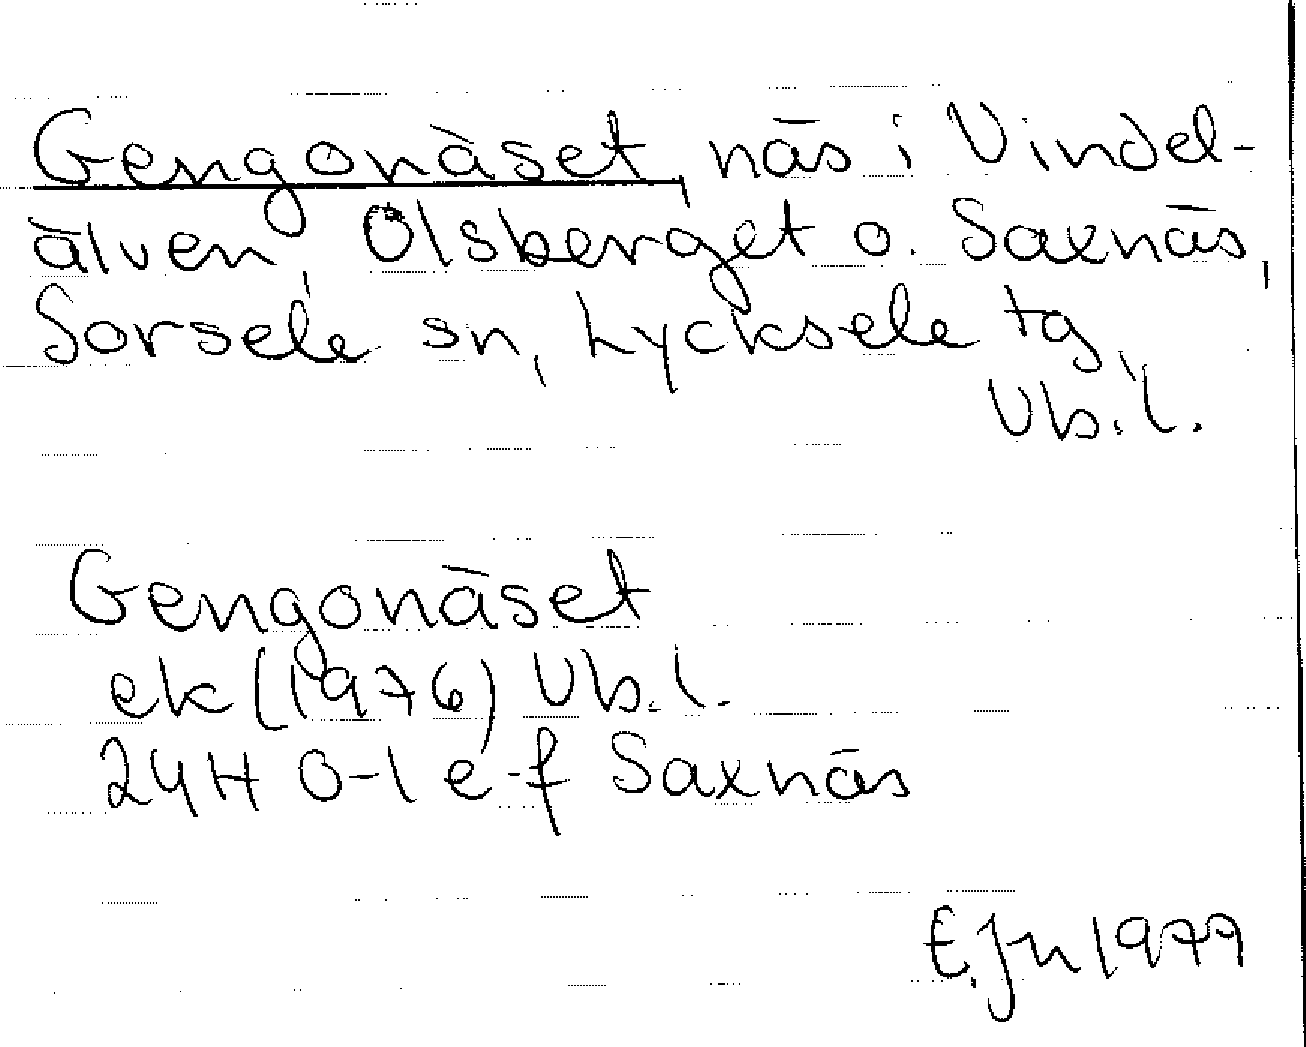 Gengonäset, näs i Vindel-
älven, Ölsberget o. Saxnäs,
Sorsele sn, Lycksele tg,
Vb.l.
Gengonäset
ek (1976) Vb.l.
24H 0-1 e-f Saxnäs
E.Jn 1979